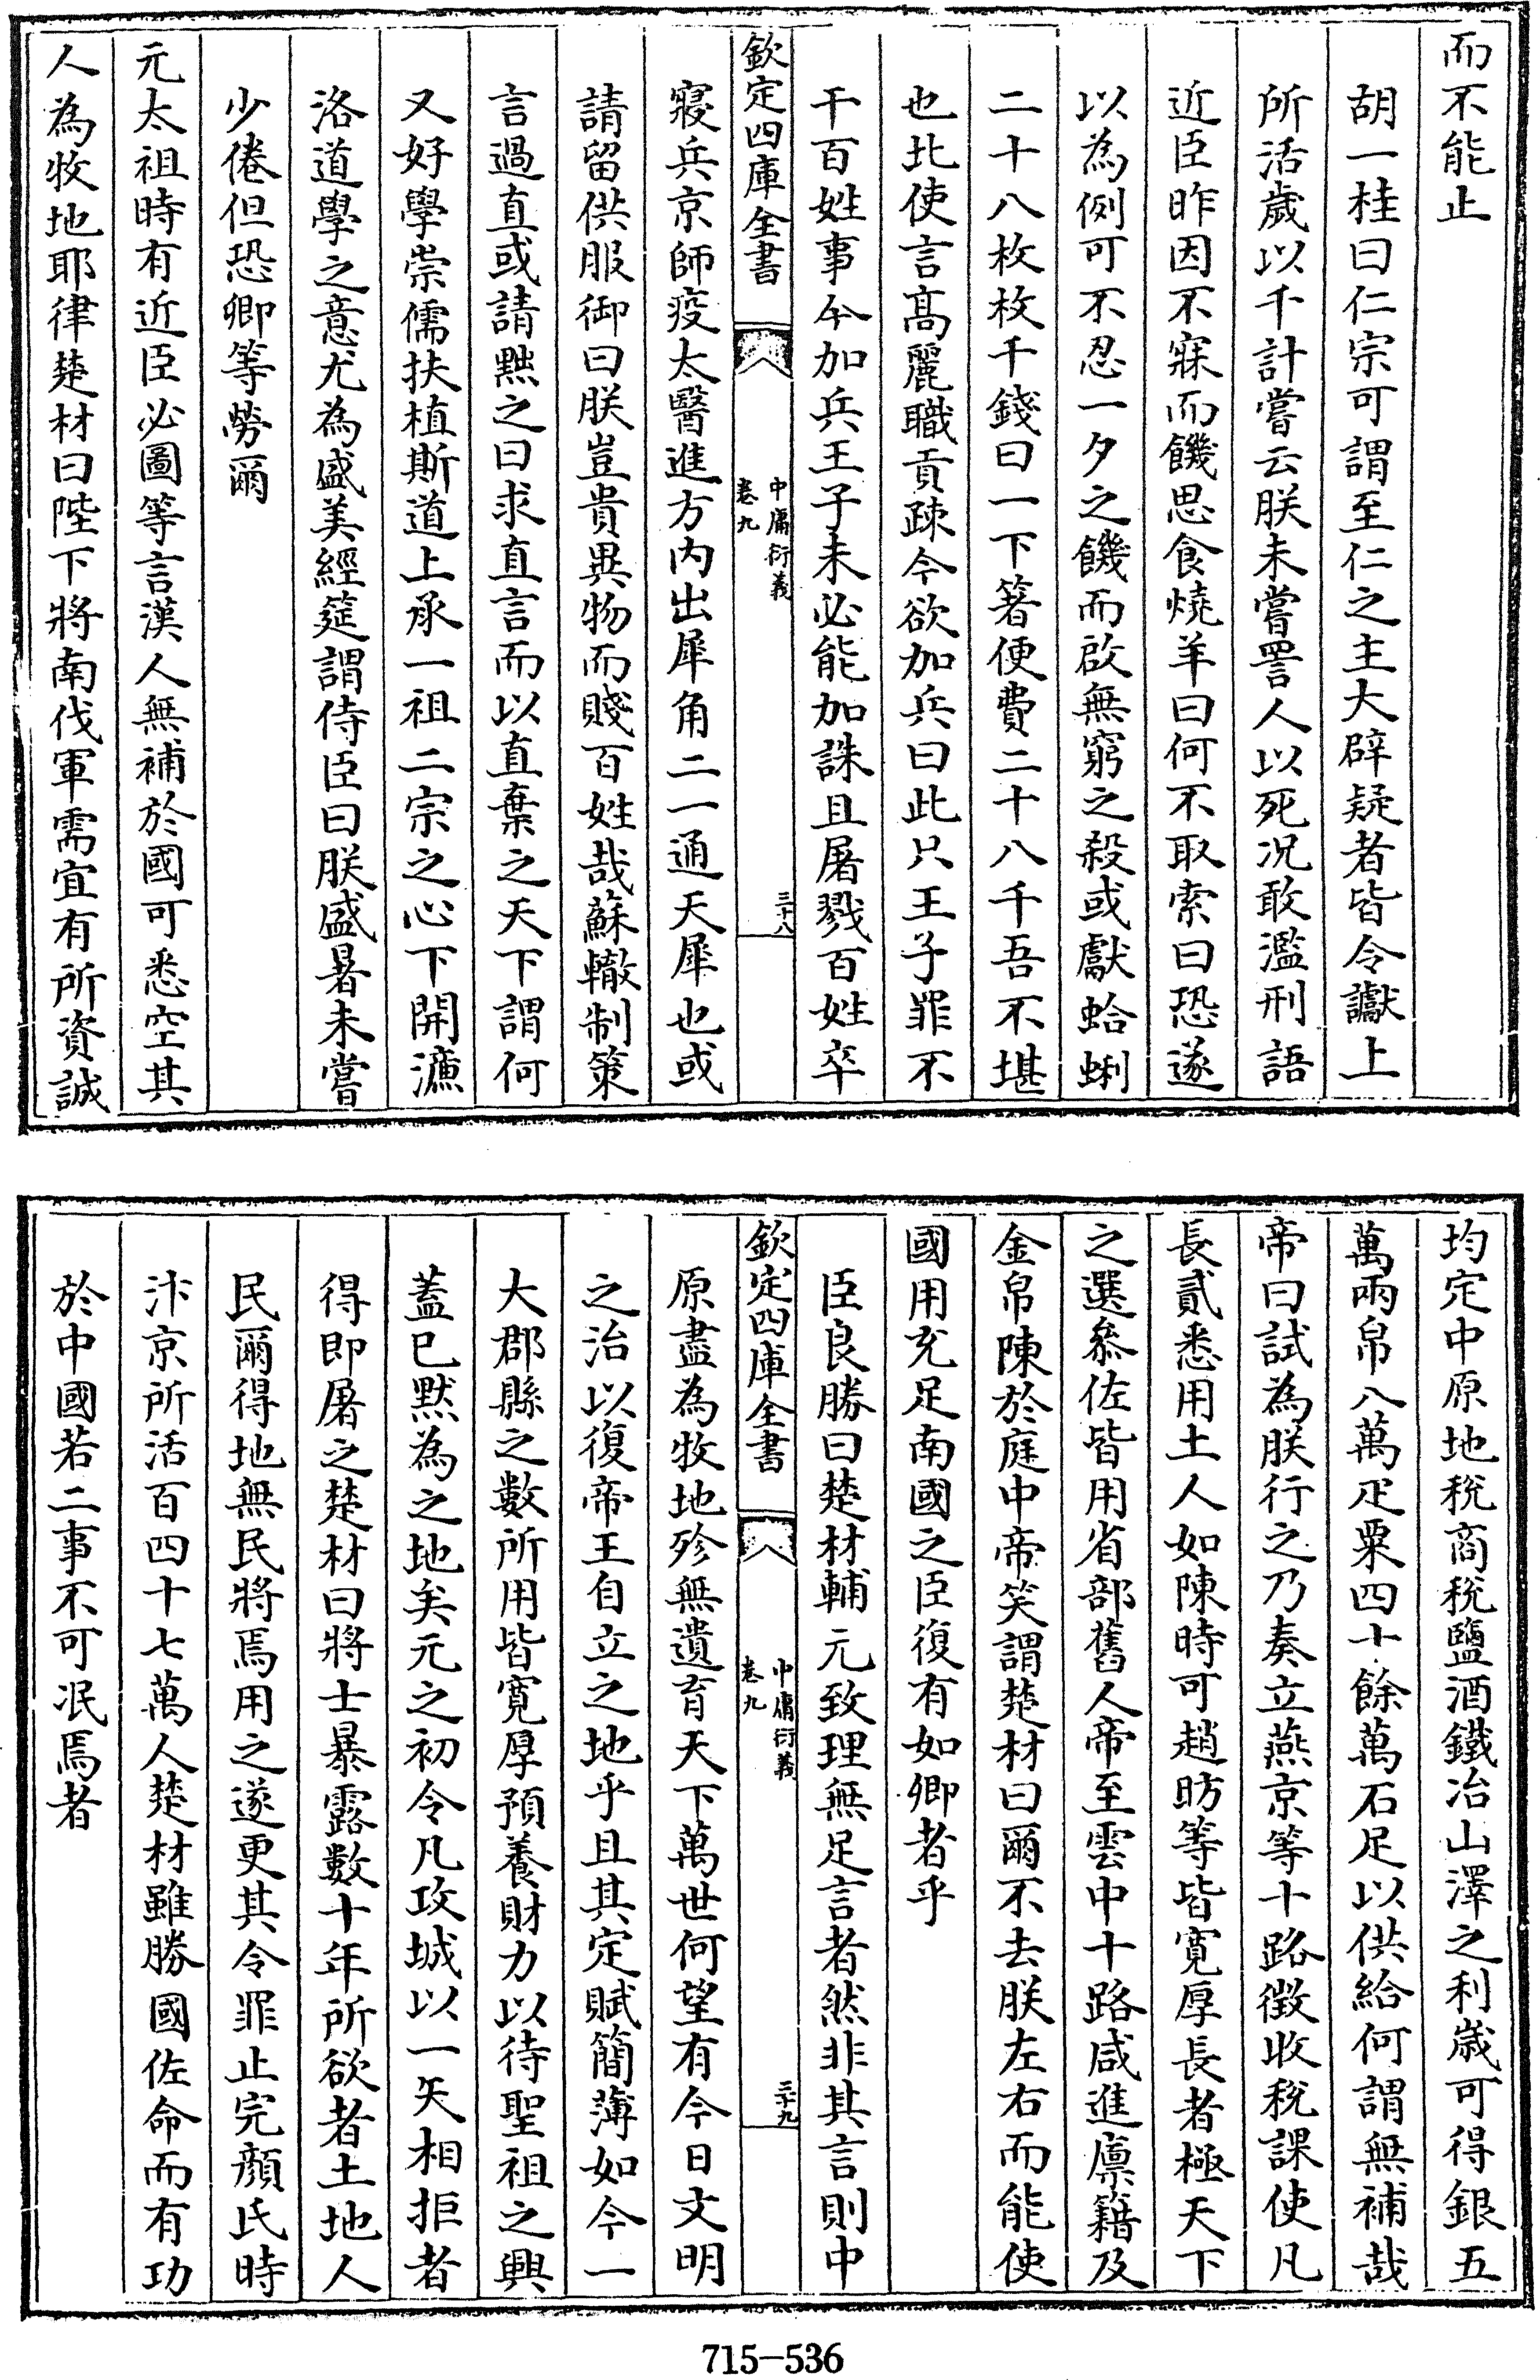 而不能止
胡一桂曰仁宗可謂至仁之主大辟疑者皆令讞上
所活歲以千計嘗云朕未嘗詈人以死況敢濫刑語
近臣昨因不寐而饑思食燒羊曰何不取索曰恐遂
以為例可不忍一夕之饑而啟無窮之殺或獻蛤蜊
二十八枚枚千錢曰一下箸便費二十八千吾不堪
也北使言髙麗職貢疎今欲加兵曰此只王子罪不
干百姓事今加兵王子未必能加誅且屠戮百姓卒
欽定四庫全書
中庸衍義
卷九
三十八
寢兵京師疫太醫進方内出犀角二一通天犀也或
請留供服御曰朕豈貴異物而賤百姓哉蘇轍制策
言過直或請黜之曰求直言而以直棄之天下謂何
又好學崇儒扶植斯道上承一祖二宗之心下開濂
洛道學之意尤為盛美經筵謂侍臣曰朕盛暑未嘗
少倦但恐卿等勞爾
元太祖時有近臣必圖等言漢人無補於國可悉空其
人為牧地耶律楚材曰陛下將南伐軍需宜有所資誠
均定中原地稅商稅鹽酒鐵冶山澤之利歲可得銀五
萬兩帛八萬疋粟四十餘萬石足以供給何謂無補哉
帝曰試為朕行之乃奏立燕京等十路徵收稅課使凡
長貳悉用士人如陳時可趙昉等皆寛厚長者極天下
之選叅佐皆用省部舊人帝至雲中十路咸進廪籍及
金帛陳於庭中帝笑謂楚材曰爾不去朕左右而能使
國用充足南國之臣復有如卿者乎
臣良勝曰楚材輔元致理無足言者然非其言則中
欽定四庫全書
中庸衍義
卷九
三十九
原盡為牧地殄無遺育天下萬世何望有今日文明
之治以復帝王自立之地乎且其定賦簡薄如今一
大郡縣之數所用皆寛厚預養財力以待聖祖之興
蓋已默為之地矣元之初令凡攻城以一矢相拒者
得即屠之楚材曰將士暴露數十年所欲者土地人
民爾得地無民將焉用之遂更其令罪止完顔氏時
汴京所活百四十七萬人楚材雖勝國佐命而有功
於中國若二事不可泯焉者
715-536